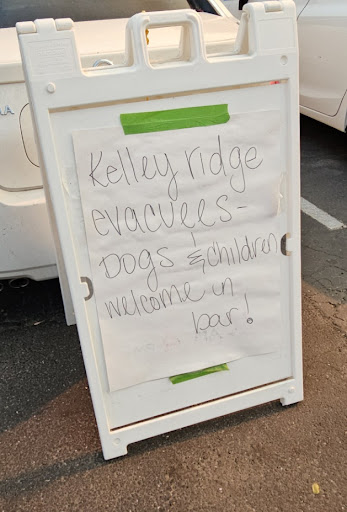 Kelley ridge
evacuees-
Dogs & children
welcome in
bar!